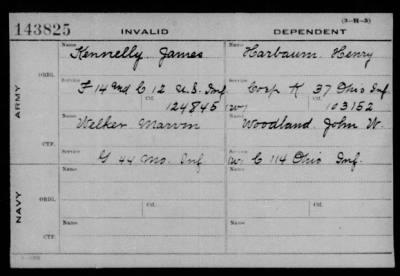 (3-H-3)
143825 INVALID DEPENDENT
Name Name
Kennelly James Harbaum Henry
ORIG. Service Service
F 14 Md C 12 U.S. Inf Corp K 37 Ohio Inf
Ctf. Ctf.
ARMY 124845 (w) 103152
Name Name
Welker Marvin Woodland John W.
CTF. Service Service
G 44 Mo. Inf (w) C 114 Ohio Inf.
Name Name
NAVY ORIG. Ctf. Ctf.
Name Name
CTF.